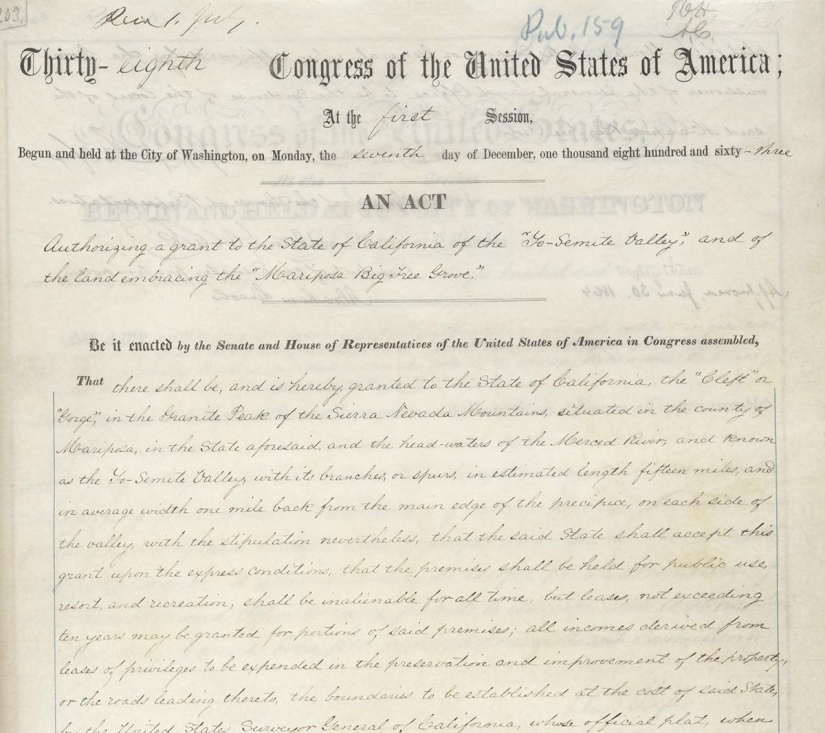 203.
Pub. 159
Thirty-eighth Congress of the United States of America;
At the first Session,
Begun and held at the City of Washington, on Monday, the seventh day of December, one thousand eight hundred and sixty-three
AN ACT
Authorizing a grant to the State of California of the "Yo-Semite Valley," and of
the land embracing the "Mariposa Big Tree Grove."
Be it enacted by the Senate and House of Representatives of the United States of America in Congress assembled,
That there shall be, and is hereby, granted to the State of California, the "Cleft" or
"Gorge," in the Granite Peak of the Sierra Nevada Mountains, situated in the county of
Mariposa, in the State aforesaid, and the head-waters of the Merced River, and known
as the Yo-Semite Valley, with its branches, or spurs, in estimated length fifteen miles, and
in average width one mile back from the main edge of the precipice, on each side of
the valley, with the stipulation nevertheless, that the said State shall accept this
grant upon the express conditions, that the premises shall be held for public use,
resort, and recreation; shall be inalienable for all time, but leases, not exceeding
ten years may be granted for portions of said premises; all incomes derived from
leases of privileges to be expended in the preservation and improvement of the property,
or the roads leading thereto, the boundaries to be established at the cost of said State,
by the United States Surveyor General of California, whose official plat, when